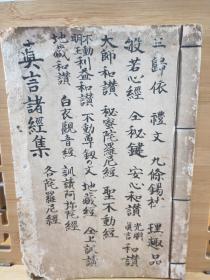 三歸依 禮文 九條錫杖 理趣品
般若心經 全秘鍵 安心和讃 光明真言和讃
大師和讃 秘密陀羅尼經 聖不動經
不動明王利益和讃 不動尊釼の文 地蔵經 全上試譯
地蔵和讃 白衣觀音經 訓讀阿弥陀經
各陀羅尼經
真言諸經集